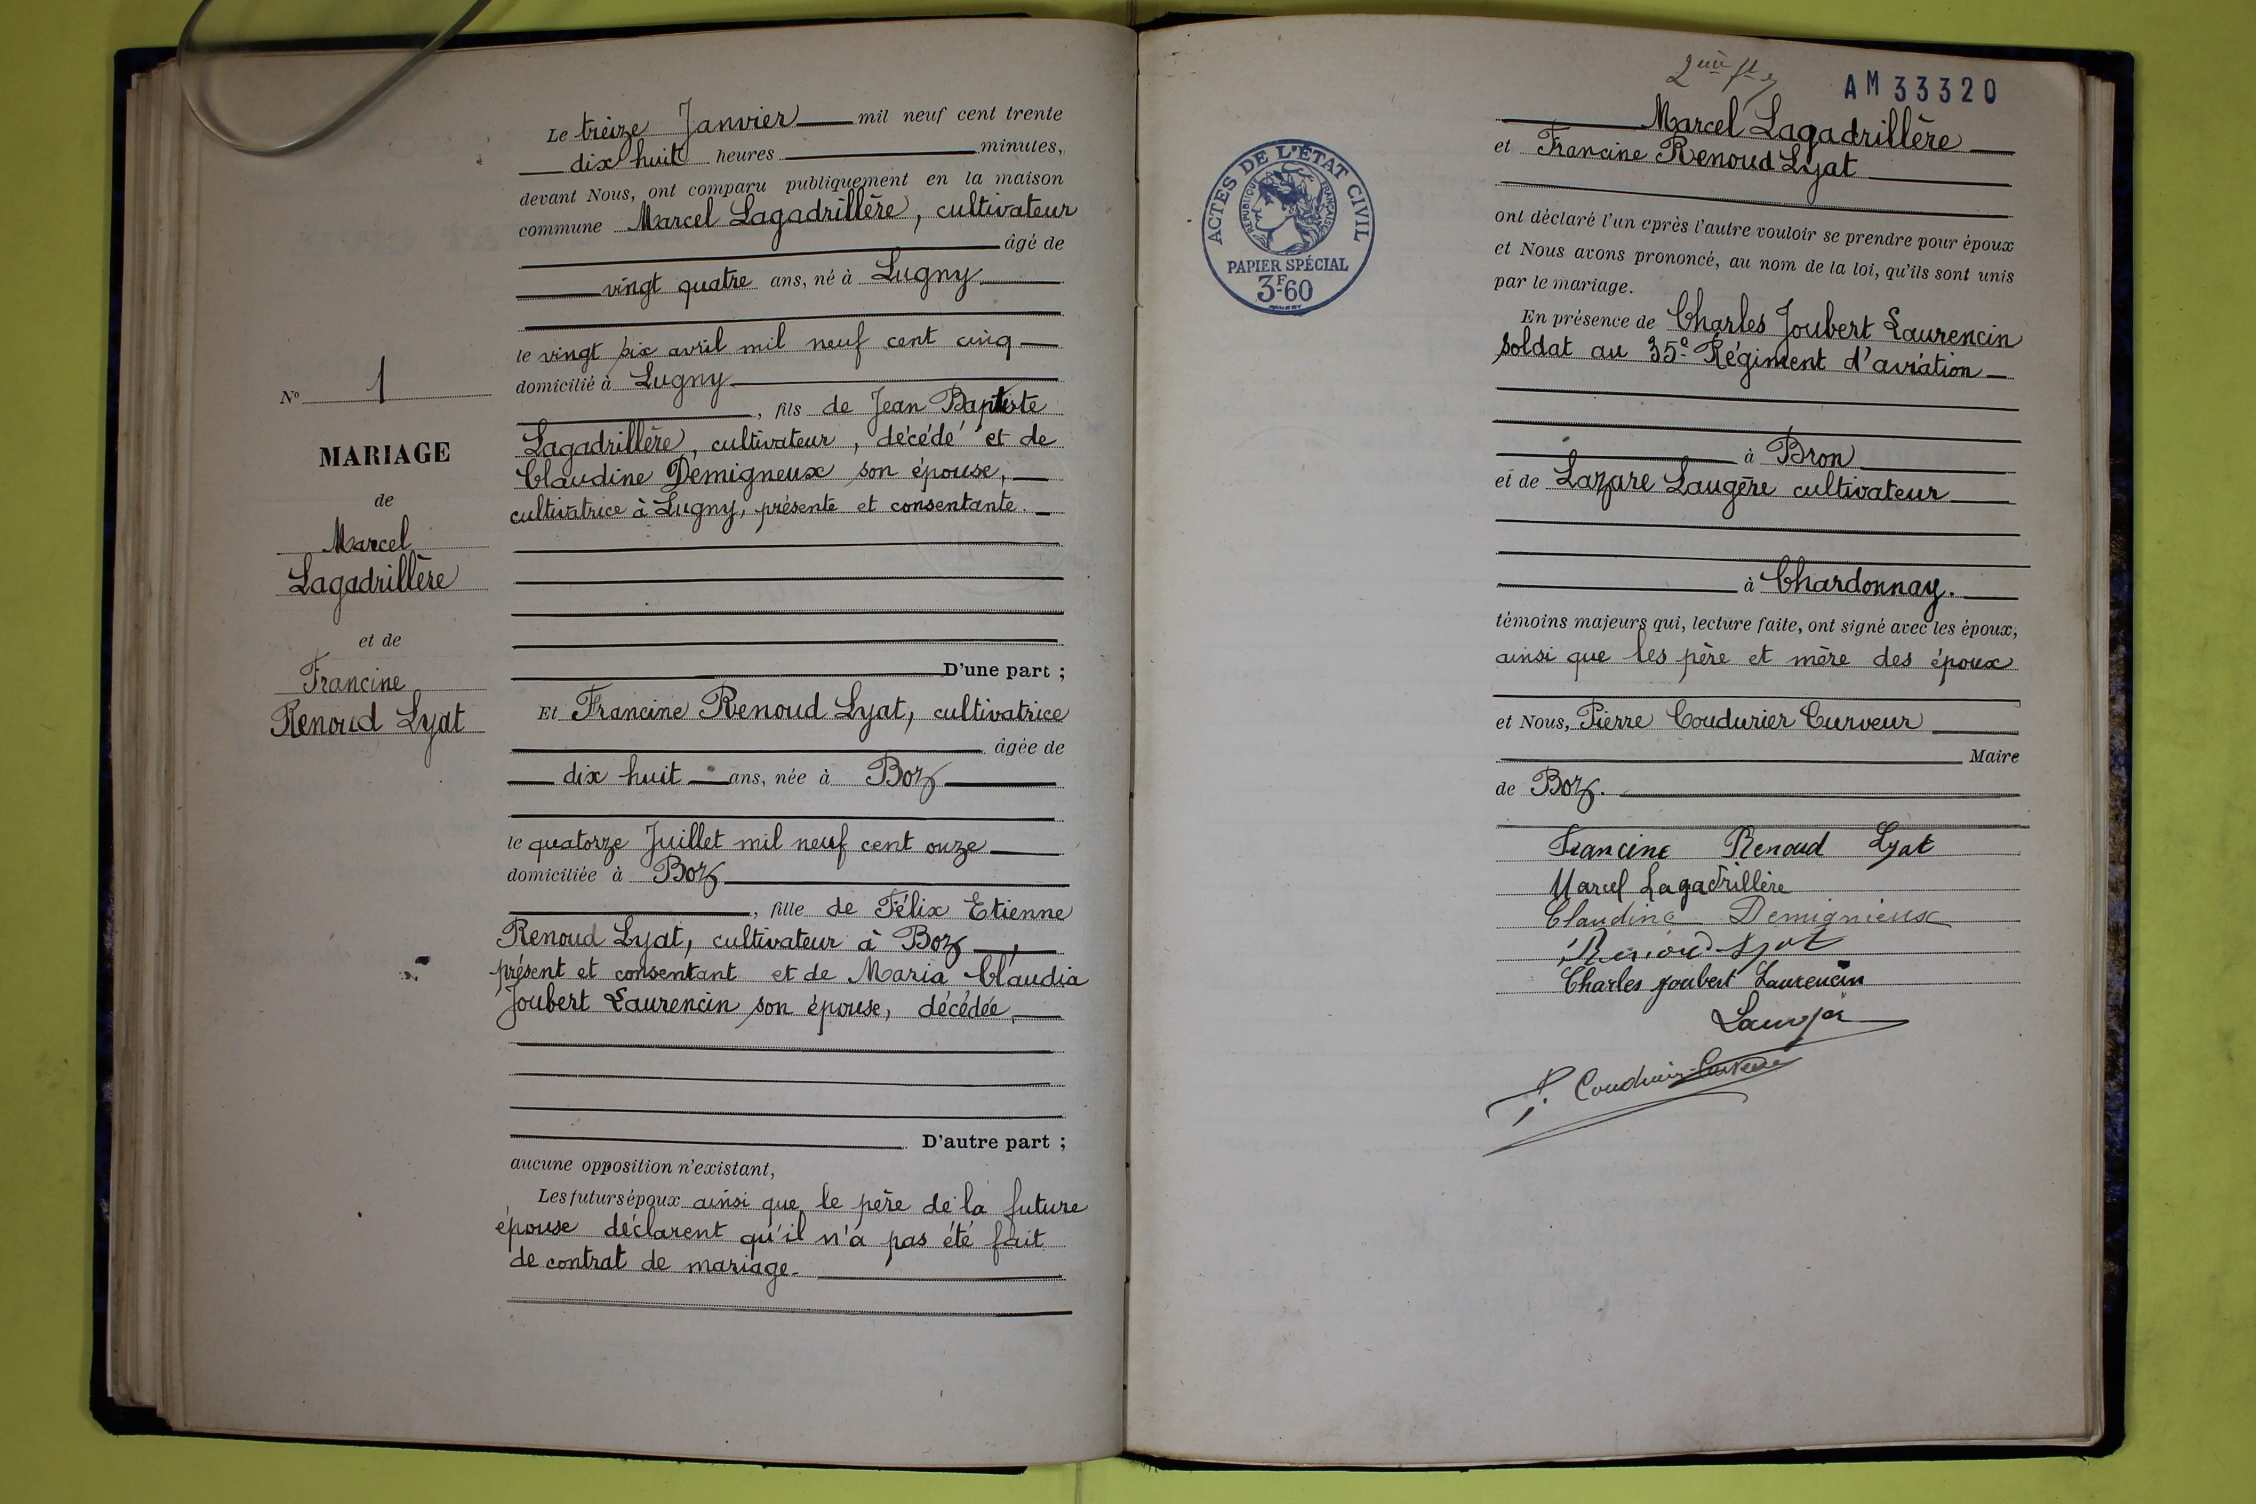 Le treize Janvier mil neuf cent trente
dix huit heures minutes,
devant Nous, ont comparu publiquement en la maison
commune Marcel Lagadrillère, cultivateur
âgé de
vingt quatre ans, né à Lugny
le vingt six avril mil neuf cent cinq
domicilié à Lugny
, fils de Jean Baptiste
Lagadrillère, cultivateur, décédé et de
Claudine Démigneux son épouse,
cultivatrice à Lugny, présente et consentante.
D'une part ;
Nº 1
MARIAGE
de
Marcel
Lagadrillère
et de
Francine
Renoud Lyat
Et Francine Renoud Lyat, cultivatrice
âgée de
dix huit ans, née à Boz
le quatorze Juillet mil neuf cent onze
domiciliée à Boz
, fille de Félix Etienne
Renoud Lyat, cultivateur à Boz,
présent et consentant et de Maria Claudia
Joubert Laurencin son épouse, décédée,
D'autre part ;
aucune opposition n'existant,
Les futurs époux ainsi que le père de la future
épouse déclarent qu'il n'a pas été fait
de contrat de mariage.
AM 33320
ACTES DE L'ÉTAT CIVIL
RÉPUBLIQUE FRANÇAISE
PAPIER SPÉCIAL
3F-60
Marcel Lagadrillère
et Francine Renoud Lyat
ont déclaré l'un après l'autre vouloir se prendre pour époux
et Nous avons prononcé, au nom de la loi, qu'ils sont unis
par le mariage.
En présence de Charles Joubert Laurencin
soldat au 35e Régiment d'aviation
à Bron
et de Lazare Laugère cultivateur
à Chardonnay.
témoins majeurs qui, lecture faite, ont signé avec les époux,
ainsi que les père et mère des époux
et Nous, Pierre Coudurier Curveur
Maire
de Boz.
Francine Renoud Lyat
Marcel Lagadrillère
Claudine Demignieux
Renoud Lyat
Charles Joubert Laurencin
P. Coudurier-Curveur